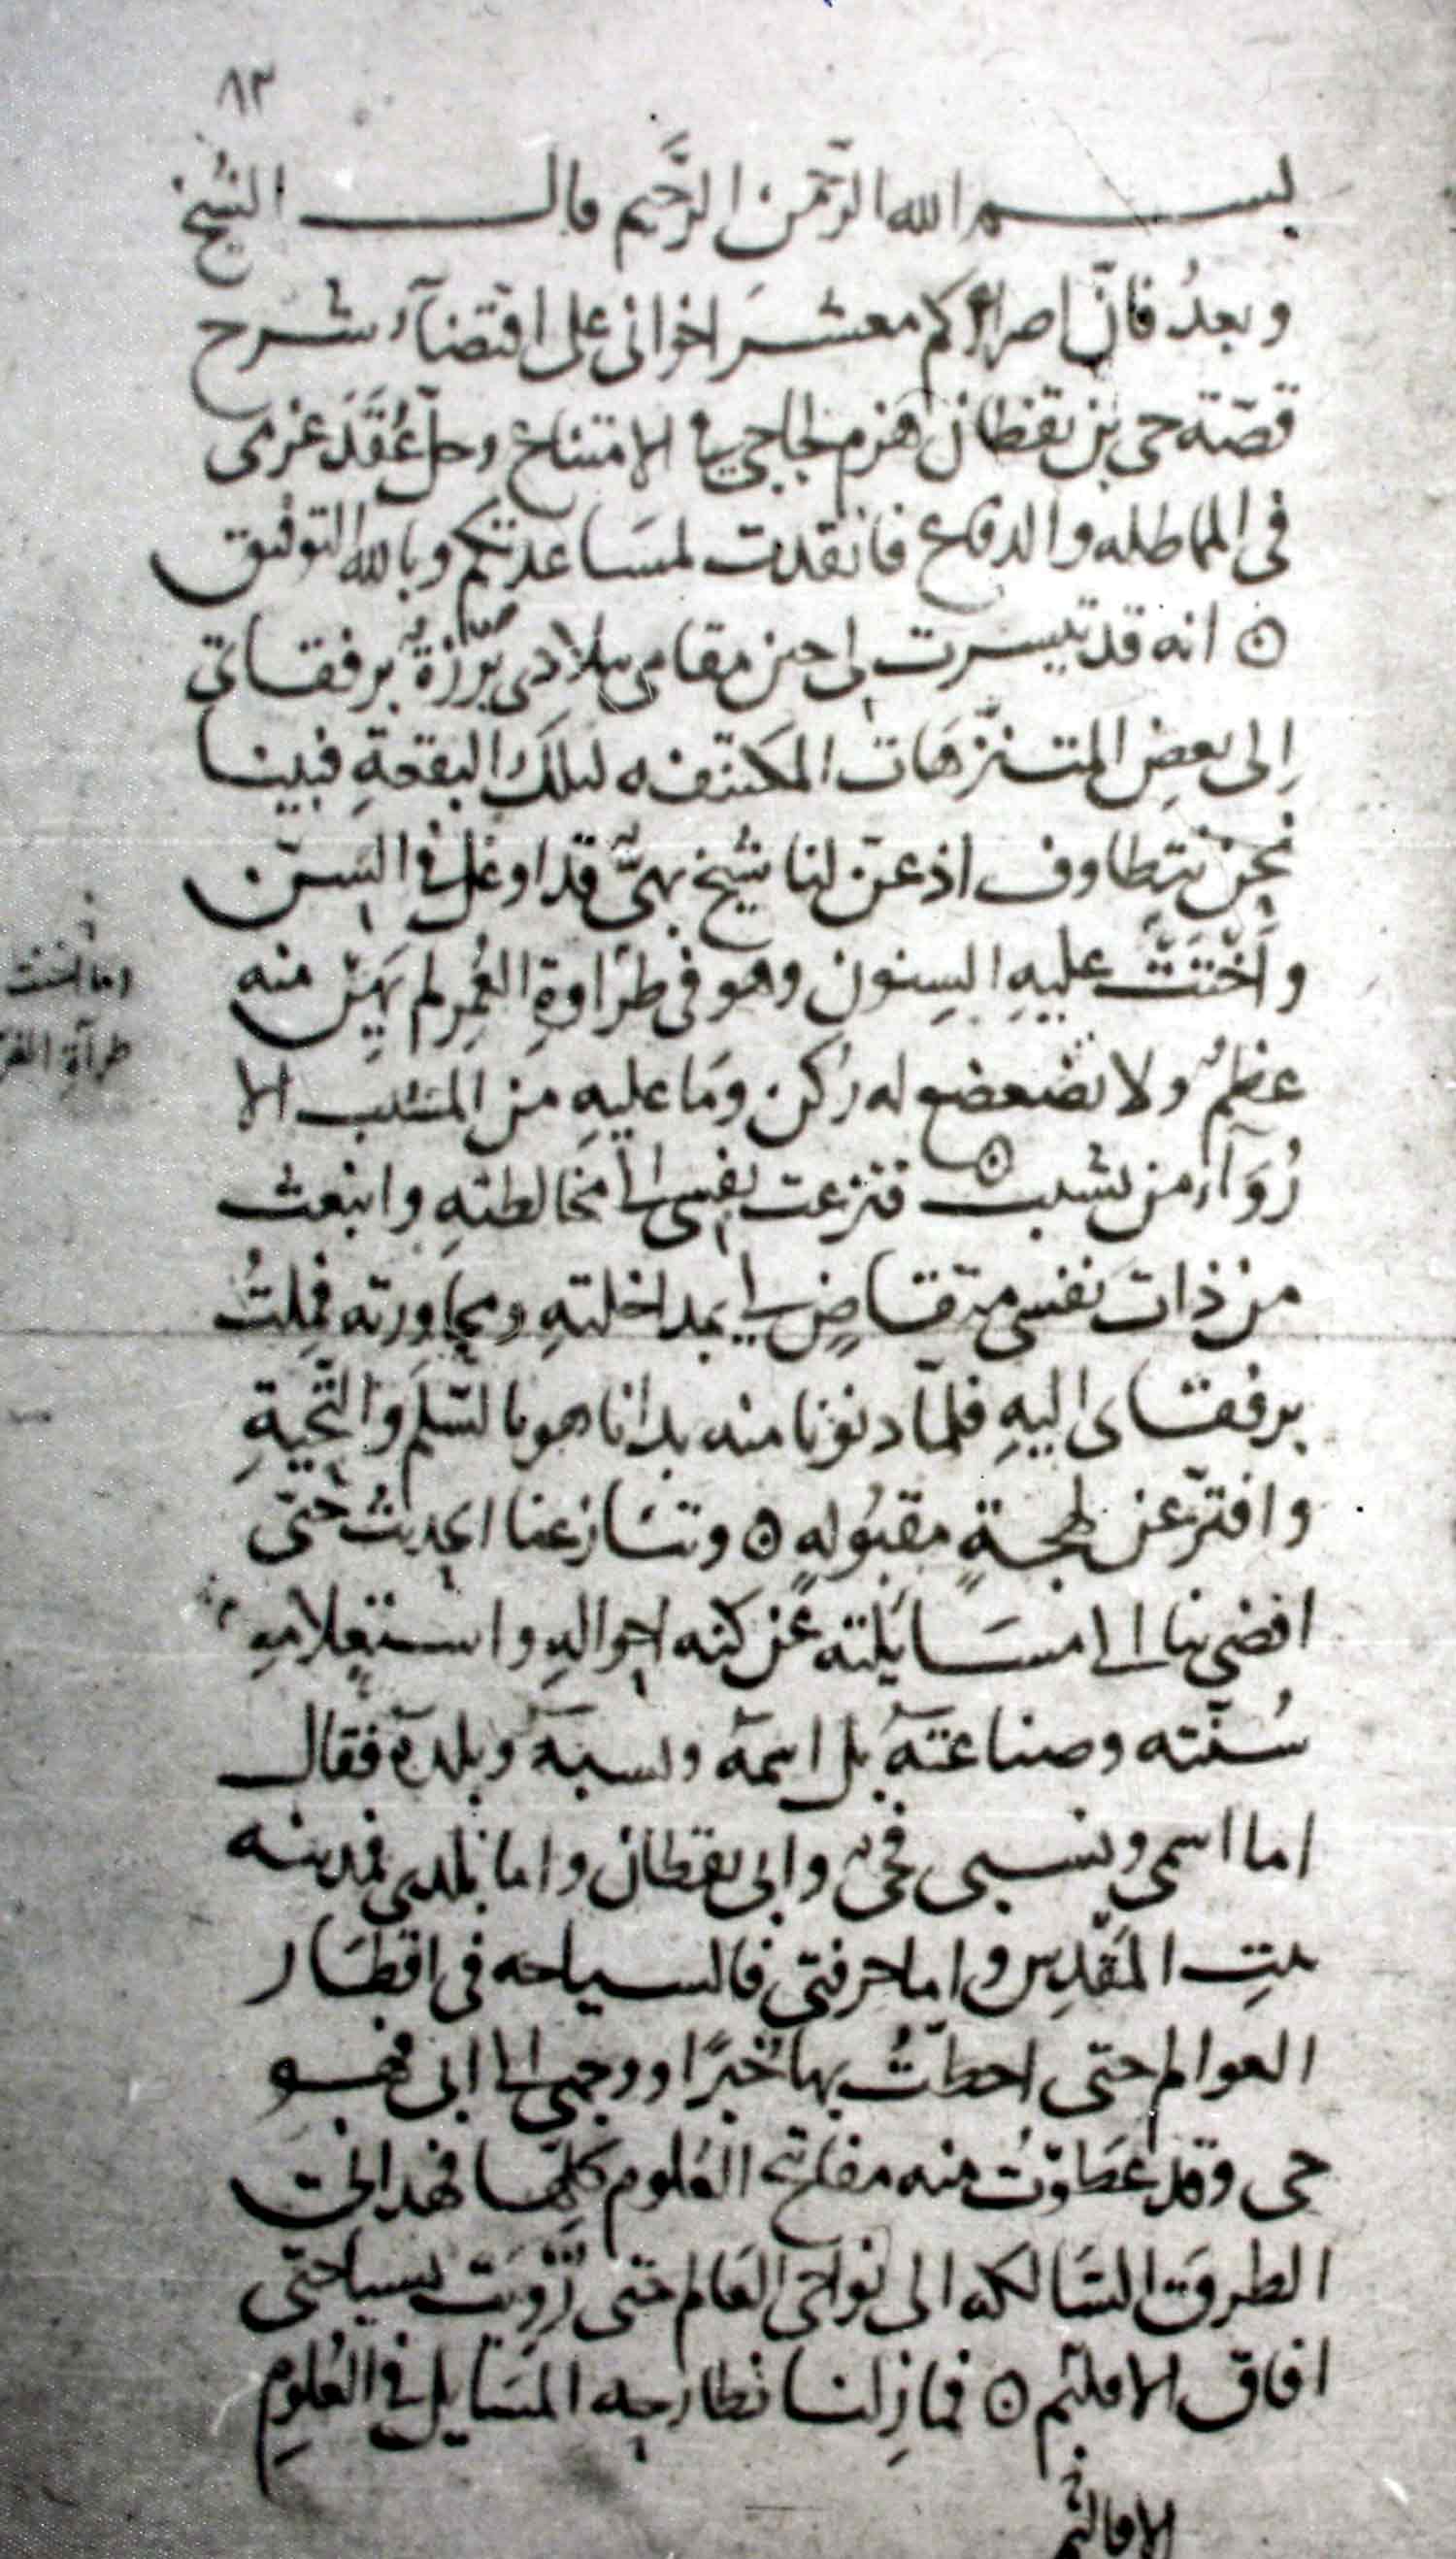 ٨٣
بسم الله الرحمن الرحيم قال الشيخ
وبعدُ فانّ اصراركم معشرَ اخوانى على اقتضآء شرح
قصّة حى بن يقظان هزم لجاجى فى الامتناع وحلّ عُقَدَ عزمى
فى المماطله والدفاع فانقدت لمسَاعدتكم وبالله التوفيق
انه قد تيسرت لى حين مقامى ببلادى بَرْزَةٌ برفقائى
إلى بعضِ المتنزّهَات المكتنفه لتلكَ البقعةِ فبينا
نحن نتطاوف اذ عنّ لنا شيخ بهىٌّ قد اوغل فى السّن
واَخْنَتْ عليهِ السِنون وهو فى طرَاوةِ العُمِر لم يَهِنْ منه
عظمٌ ولا تضعضع له ركن وَما عليهِ من المشيب الا
رُوَآء من يشيب فنزعت نفسى الى مخالطتهِ وانبعث
من ذات نفسى متقاضٍ لى بمداخلتهِ ومجاورته فمِلتُ
برفقاى اليهِ فلمّا دنونا منه بدانا هو بالسّلم والتّحيةِ
وافترّ عن لهجةٍ مقبُولهٍ وتنَازعنا الحديثُ حتّى
افضى بنا الى مسَايَلته عن كنه احوالهِ واستعلامهِ
سُنّته وصناعتَه بل اسمَه ونسبَه وبلدَه فقال
اما اسمى ونسبى فحىٌ وابن يقظان واما بلدى فمدينه
بيتِ المَقْدِس واما حرفتى فالسياحه فى اقطَار
العوالم حتى احطتُ بها خُبرًا ووجهى الى ابى وهو
حى وقد عَطَوْتُ منه مفاتح العُلوم كلِّها فهدانى
الطروقَ السَالكه الى نواحى العَالم حتى زَوَيتُ بسياحتى
افاق الاقليم فمازلنا نطارحه المسَايل فى العُلومِ
الاقاليم